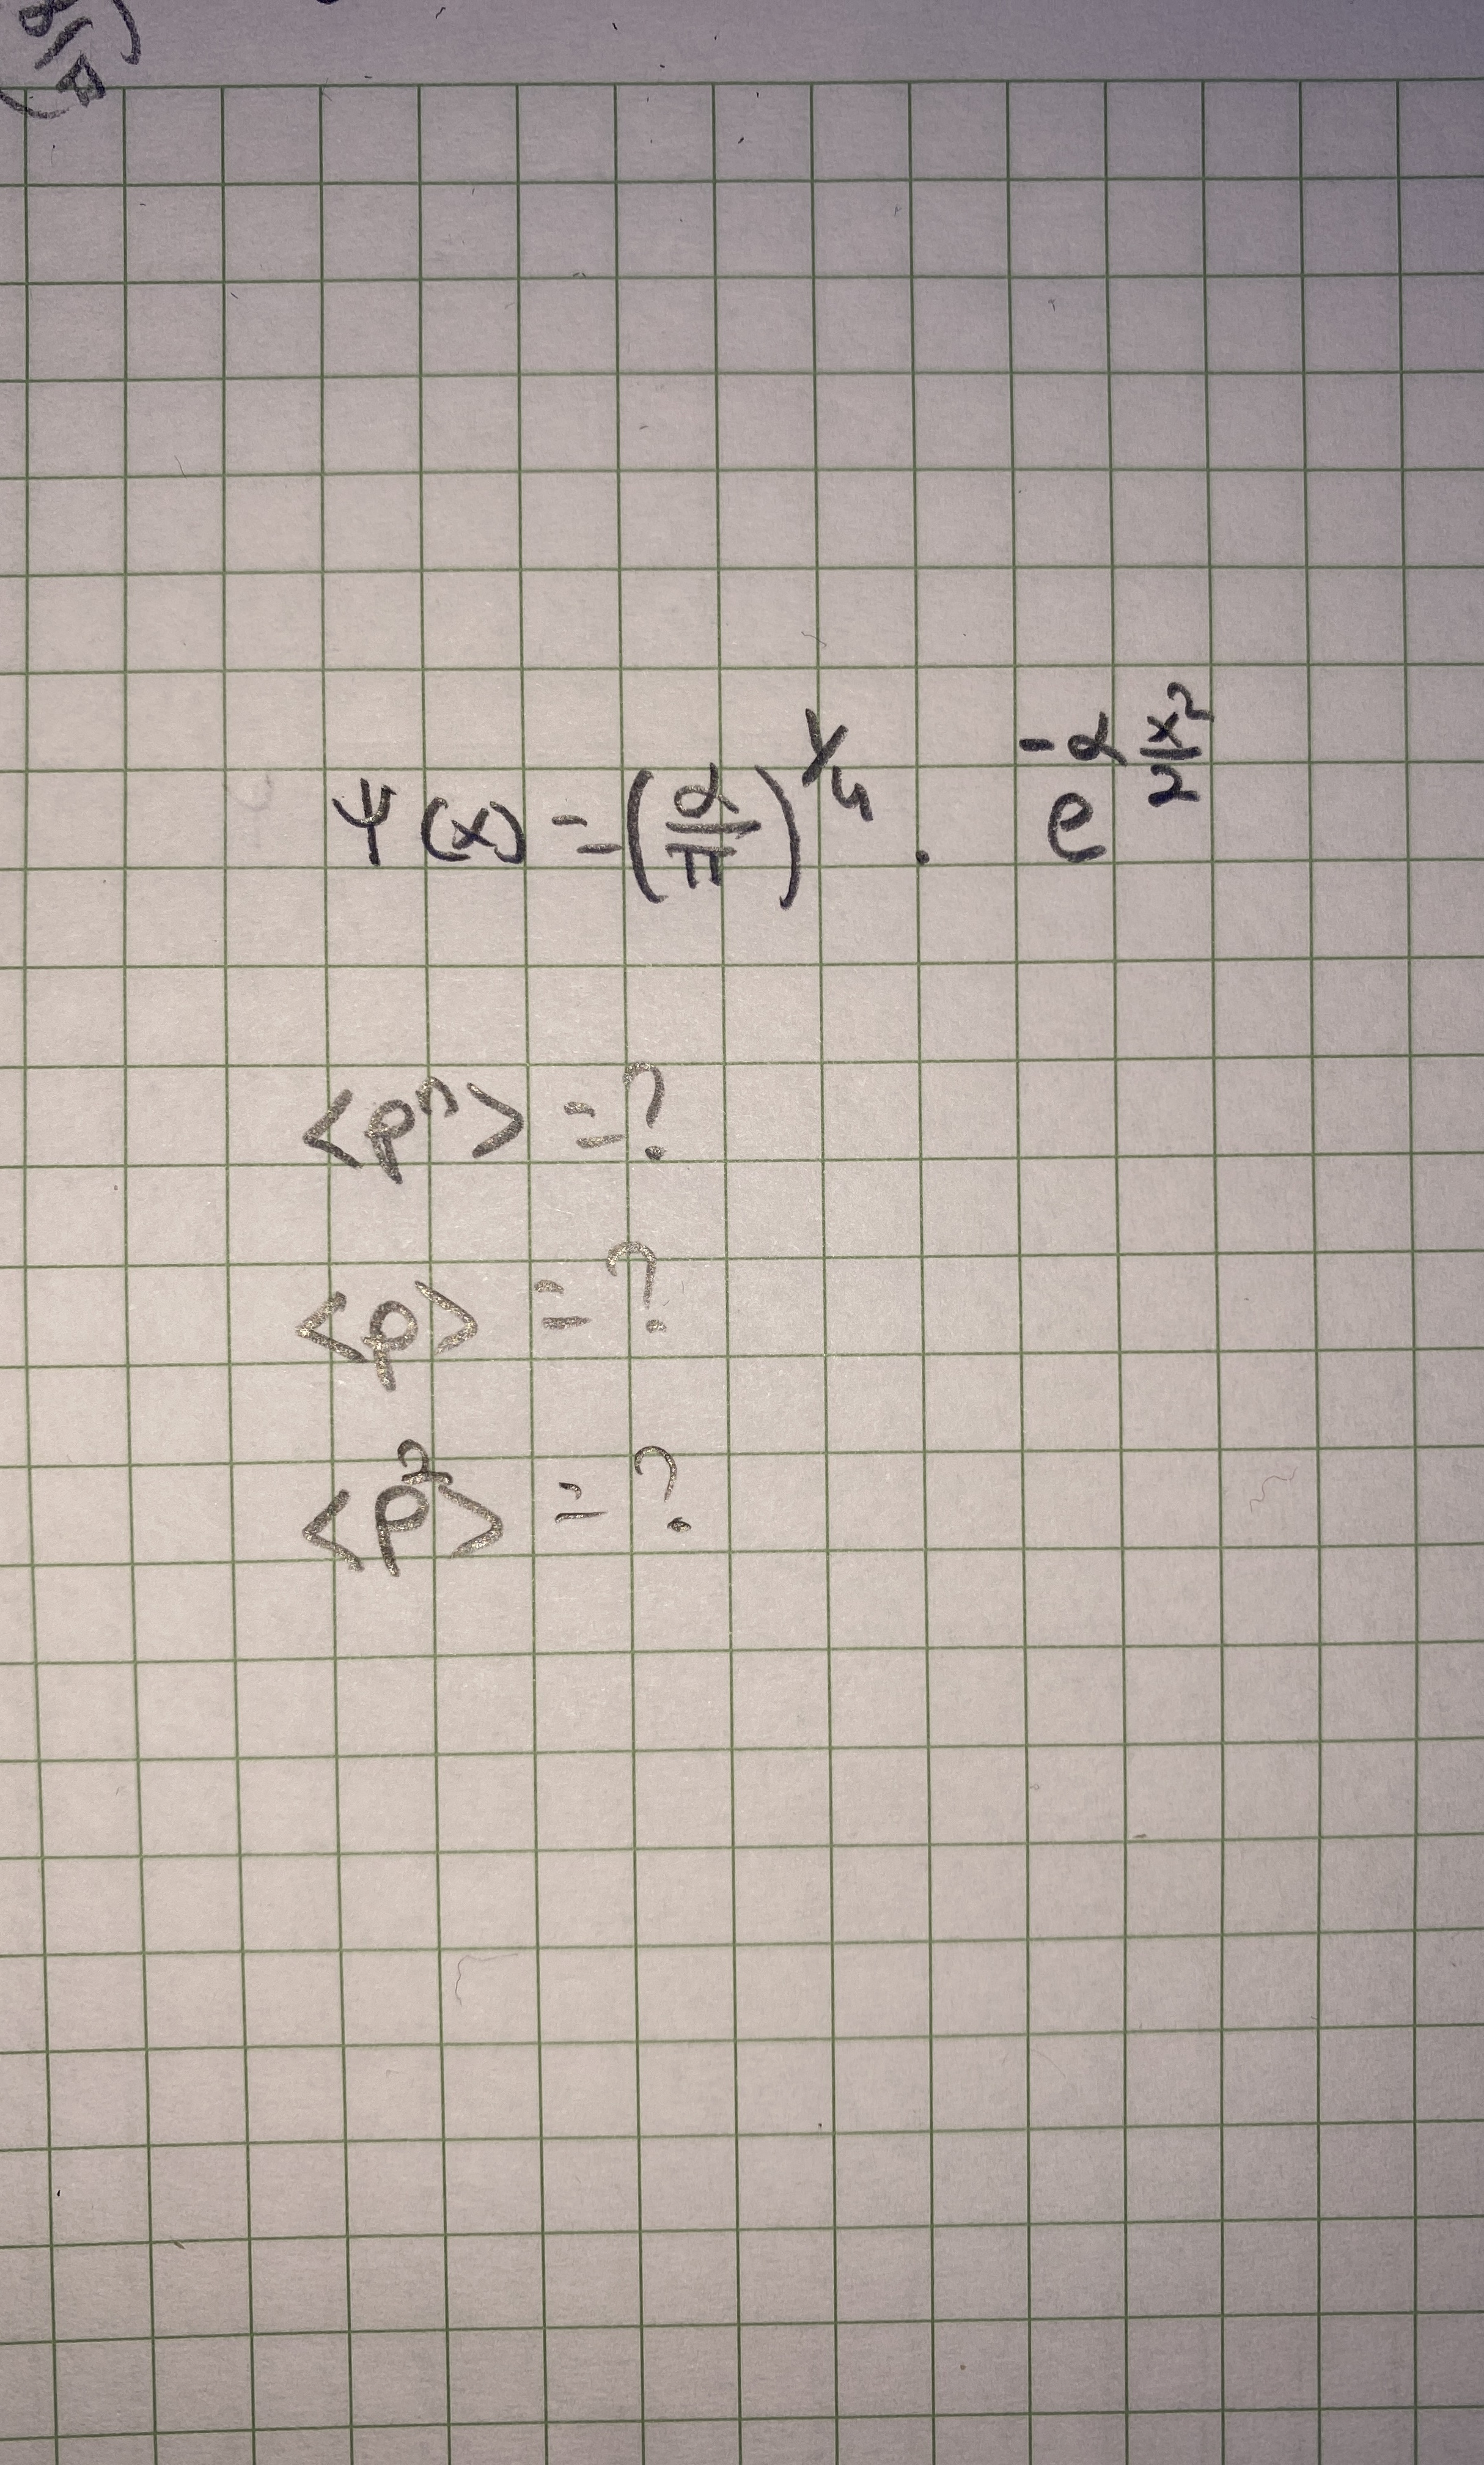 Ψ(x) = (α/π)^1/4 . e^-α x²/2
<pⁿ> = ?
<p> = ?
<p²> = ?